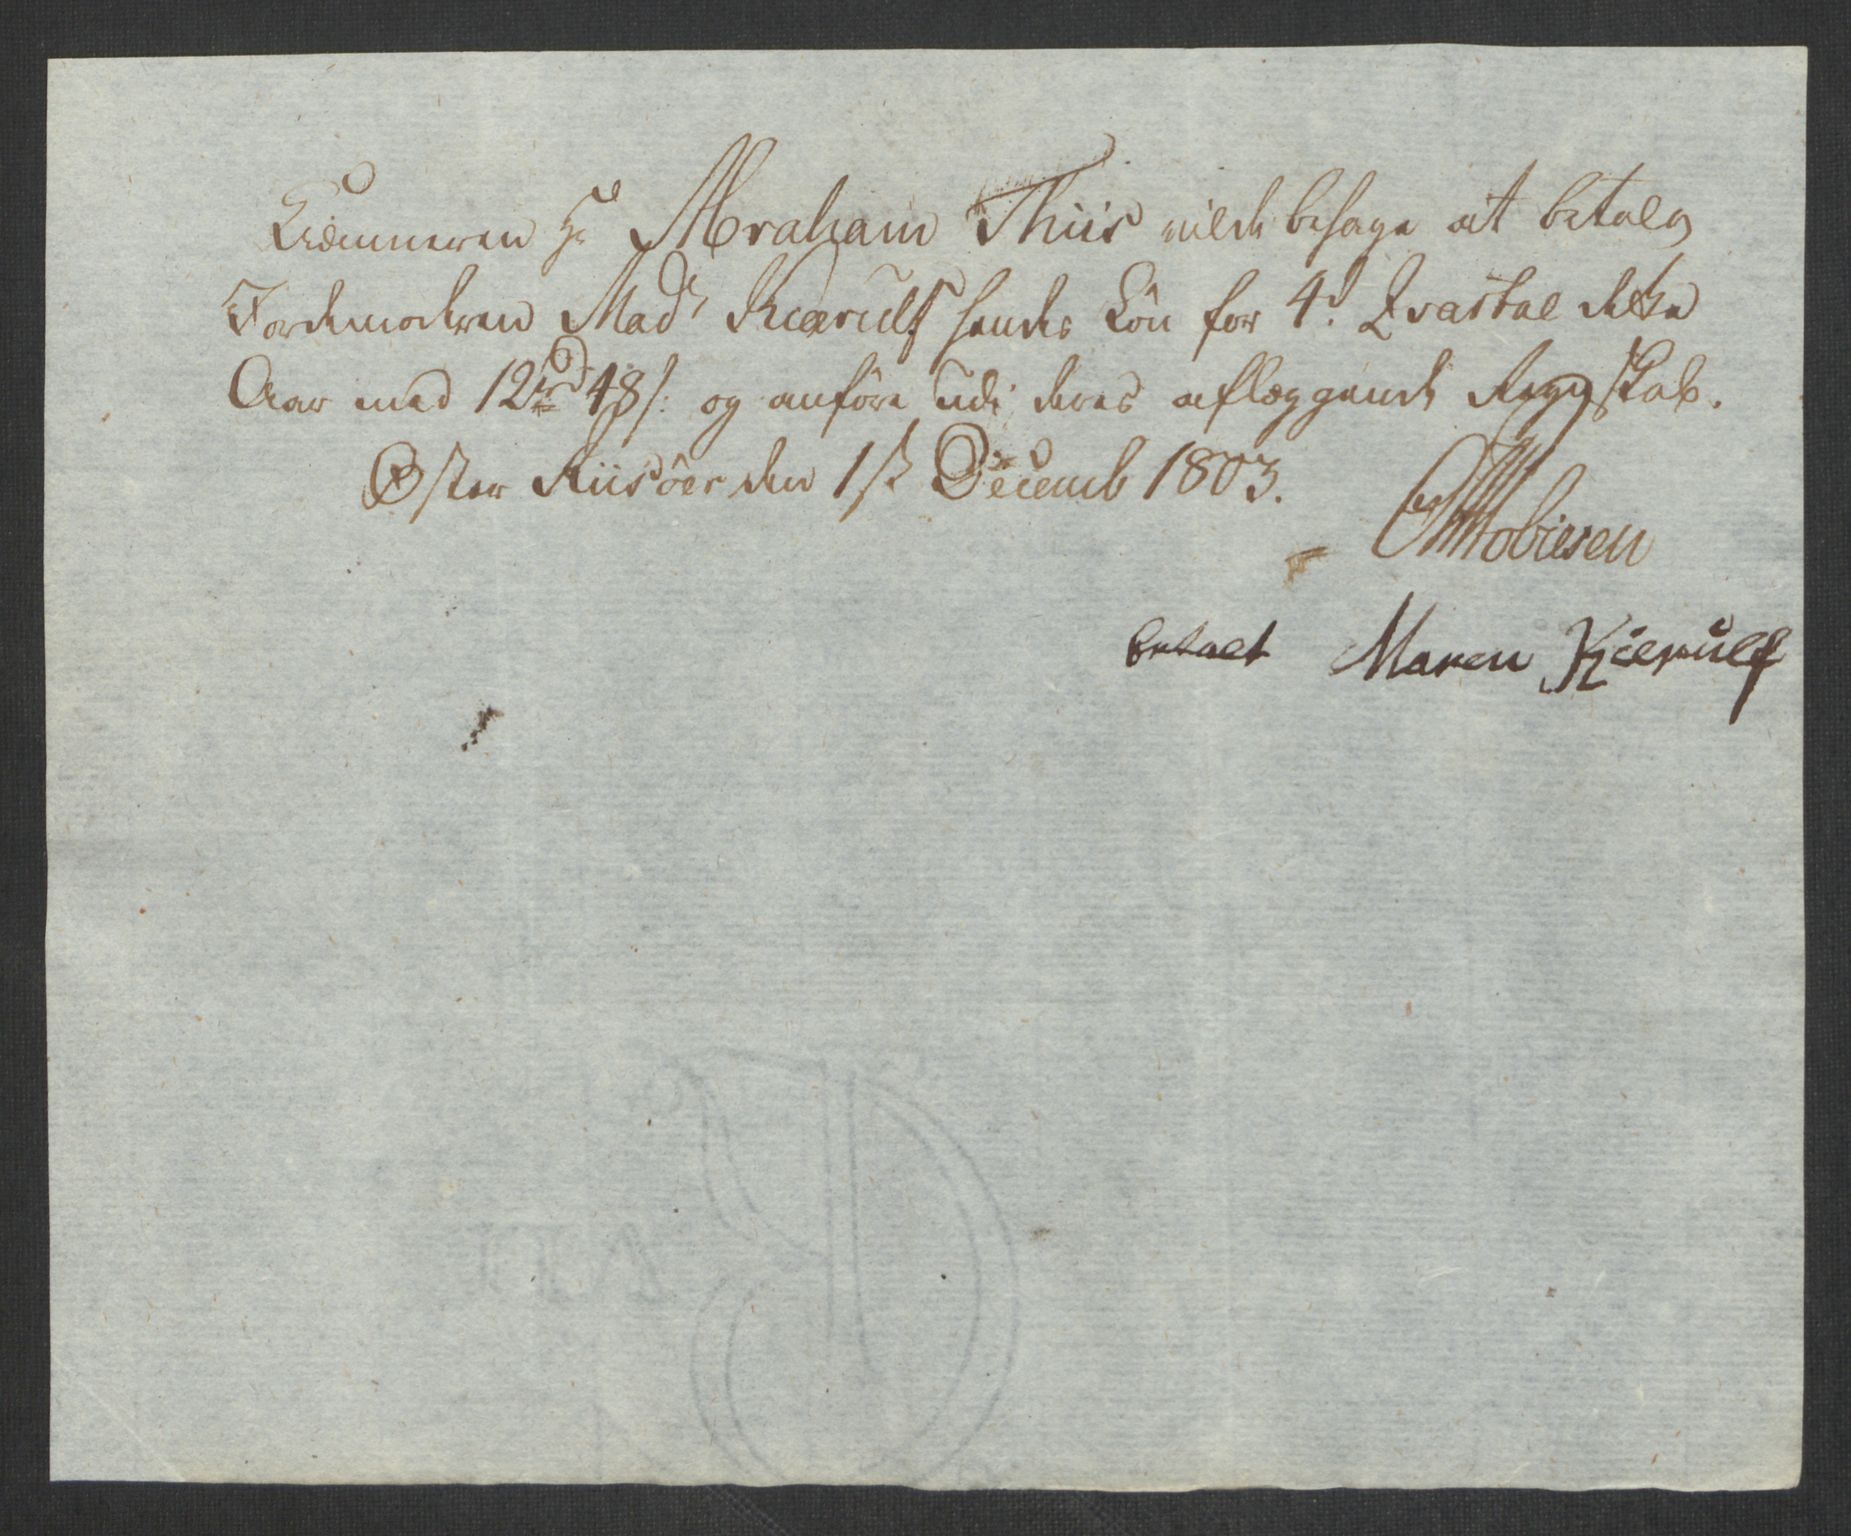 Kiæmneren Hr Abraham Thiis vilde behage at betale
Jordemoderen Madm Kiærulf hendes Lön for 4d Qvartal dette
Aar med 12rd 48s: og anföre udi deres aflæggende Regnskab.
Øster Riisöer den 1st Decemb 1803.
Tobiesen
betalt Maren Kiærulf